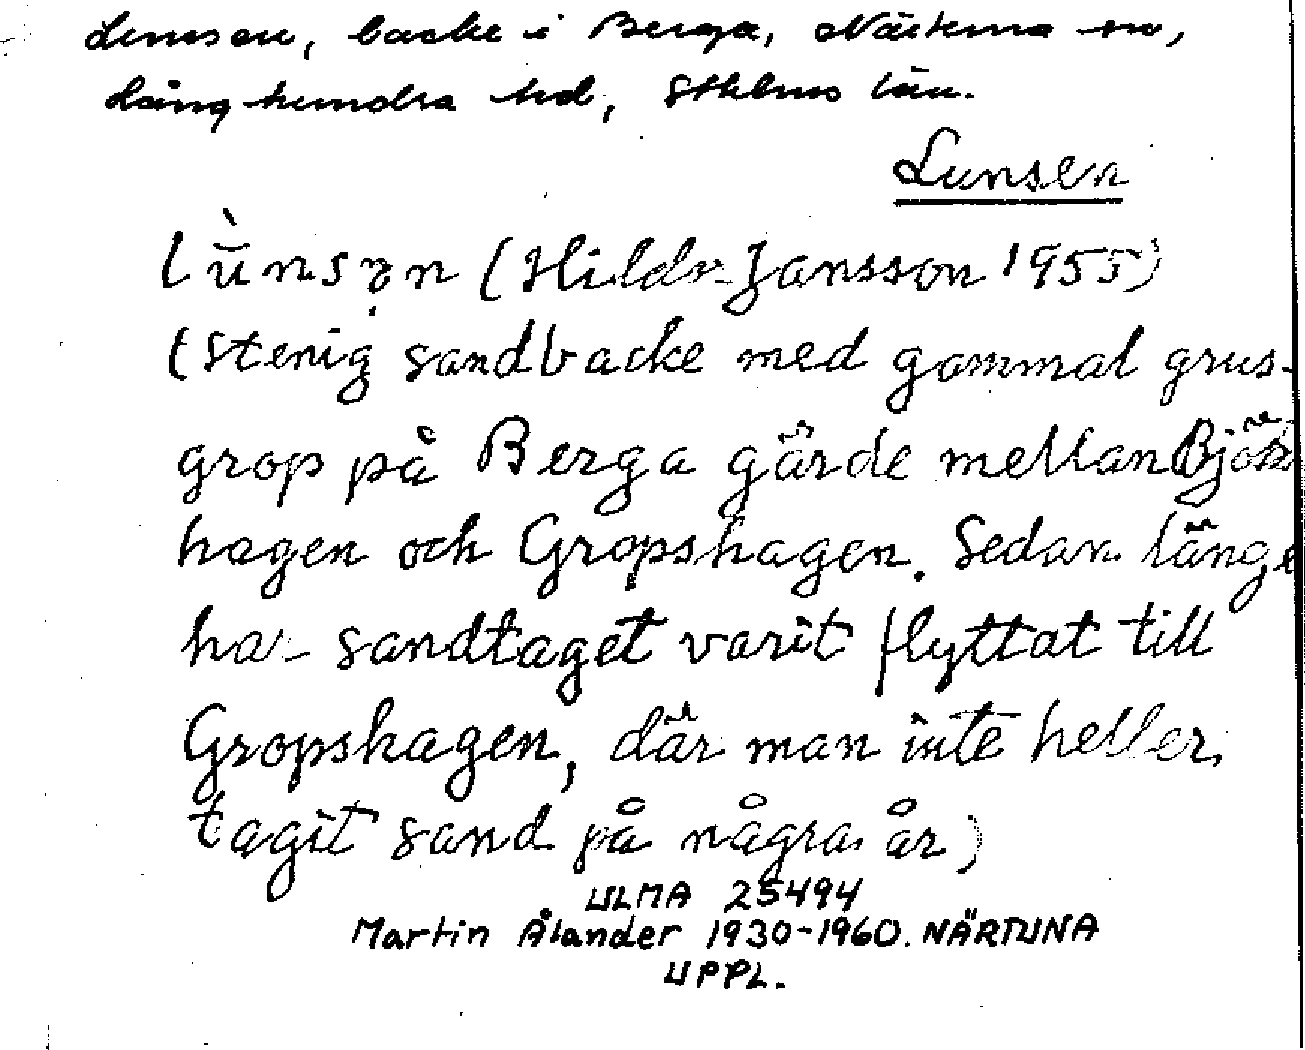 Lunsen, backe i Berga, Närtuna sn,
Långhundra hd, Sthlms län.
Lunsen
lùnsən (Hilda Jansson 1955)
(Stenig sandbacke med gammal grus-
grop på Berga gärde mellan Björk
hagen och Gropshagen. Sedan länge
har sandtaget varit flyttat till
Gropshagen, där man inte heller
tagit sand på några år)
ULMA 25494
Martin Ålander 1930-1960. NÄRTUNA
UPPL.